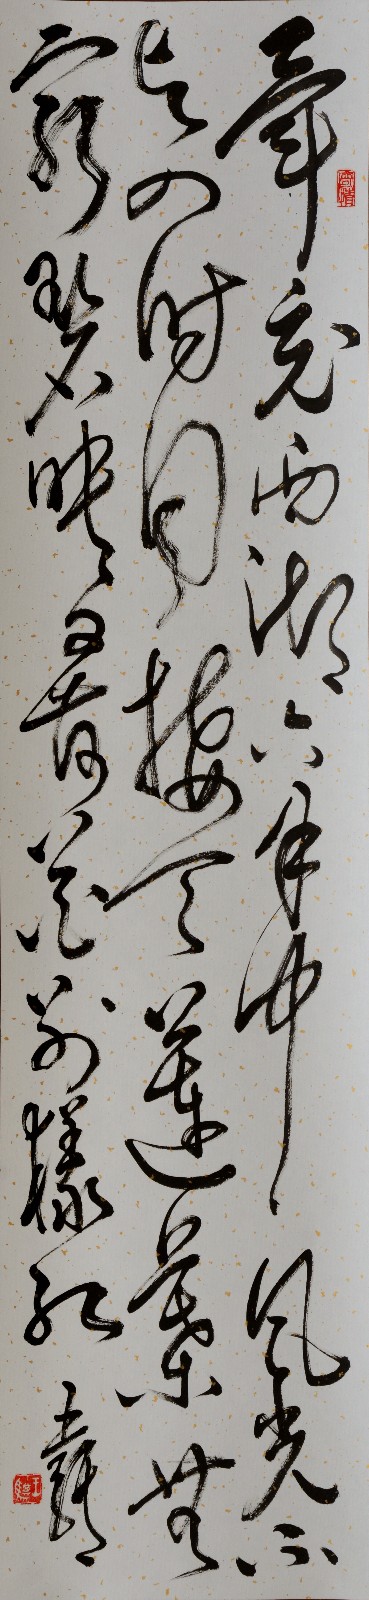 畢竟西湖六月中風光不
與四時同接天蓮葉無
窮碧映日荷花別樣紅